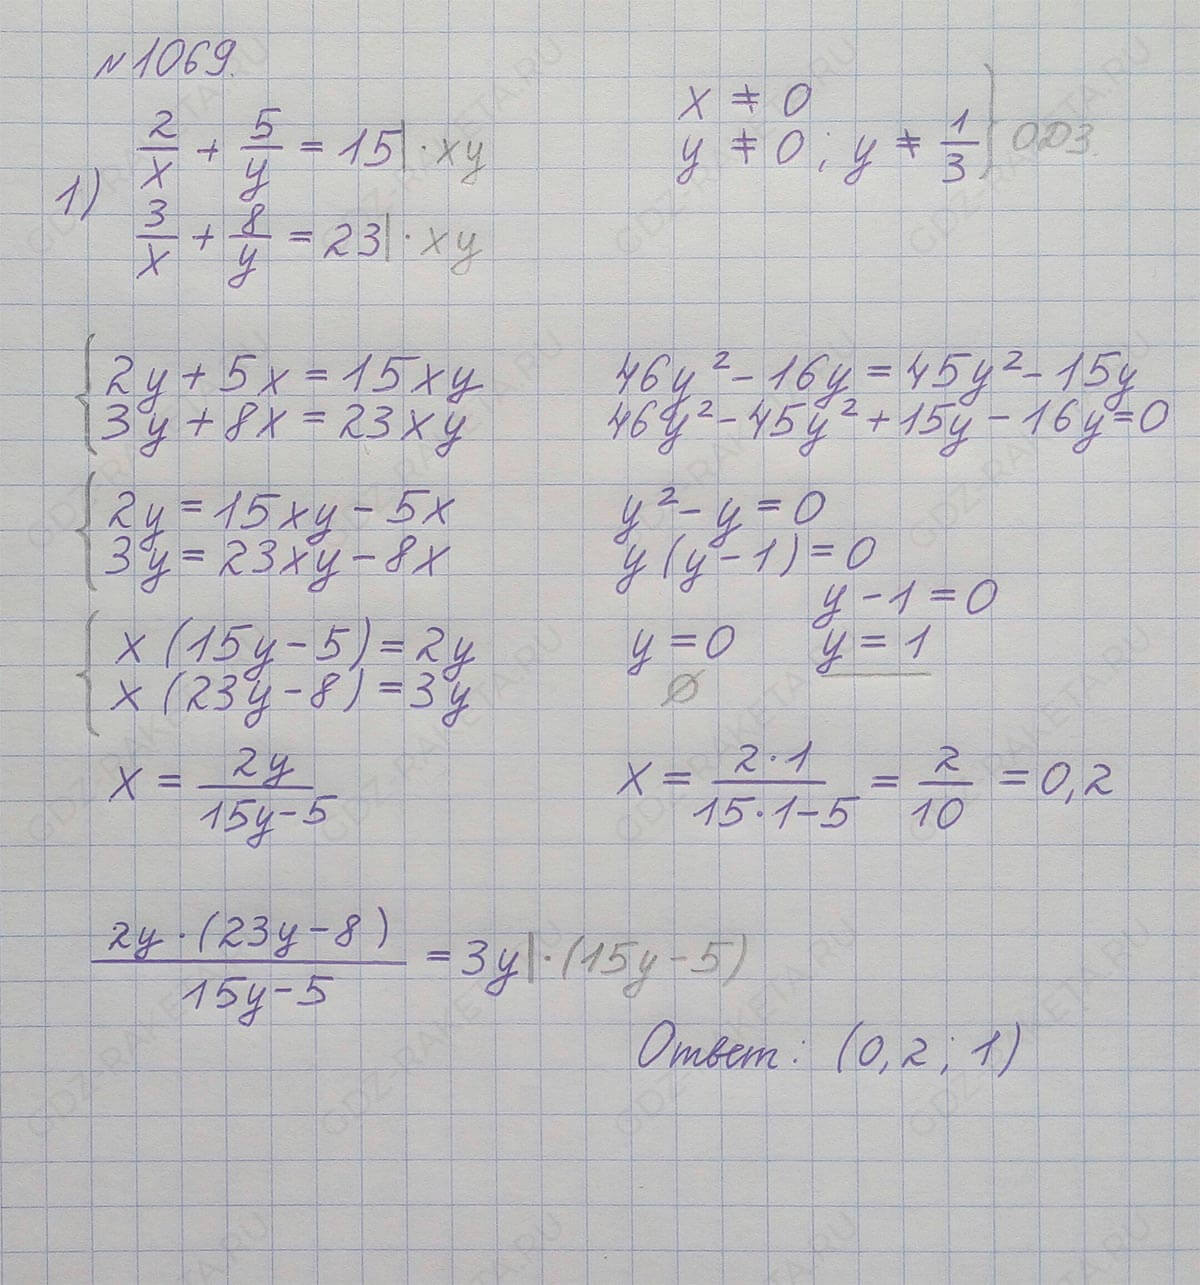 №1069.
1)
2/x + 5/y = 15 | · xy
3/x + 8/y = 23 | · xy
x ≠ 0
y ≠ 0; y ≠ 1/3 } ОДЗ.
{ 2y + 5x = 15xy
3y + 8x = 23xy
{ 2y = 15xy - 5x
3y = 23xy - 8x
{ x (15y - 5) = 2y
x (23y - 8) = 3y
x = 2y/(15y - 5)
2y · (23y - 8)/(15y - 5) = 3y | · (15y - 5)
46y² - 16y = 45y² - 15y
46y² - 45y² + 15y - 16y = 0
y² - y = 0
y (y - 1) = 0
y - 1 = 0
y = 0 y = 1
∅
x = 2·1/(15·1-5) = 2/10 = 0,2
Ответ: (0,2; 1)
GDZ-RAKETA.RU